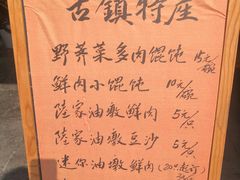 古鎮特座
野荠菜多肉馄饨 15元/碗
鲜肉小馄饨 10元/碗
陸家油墩鲜肉 5元/只
陸家油墩豆沙 5元/只
迷你油墩鲜肉(20元起订